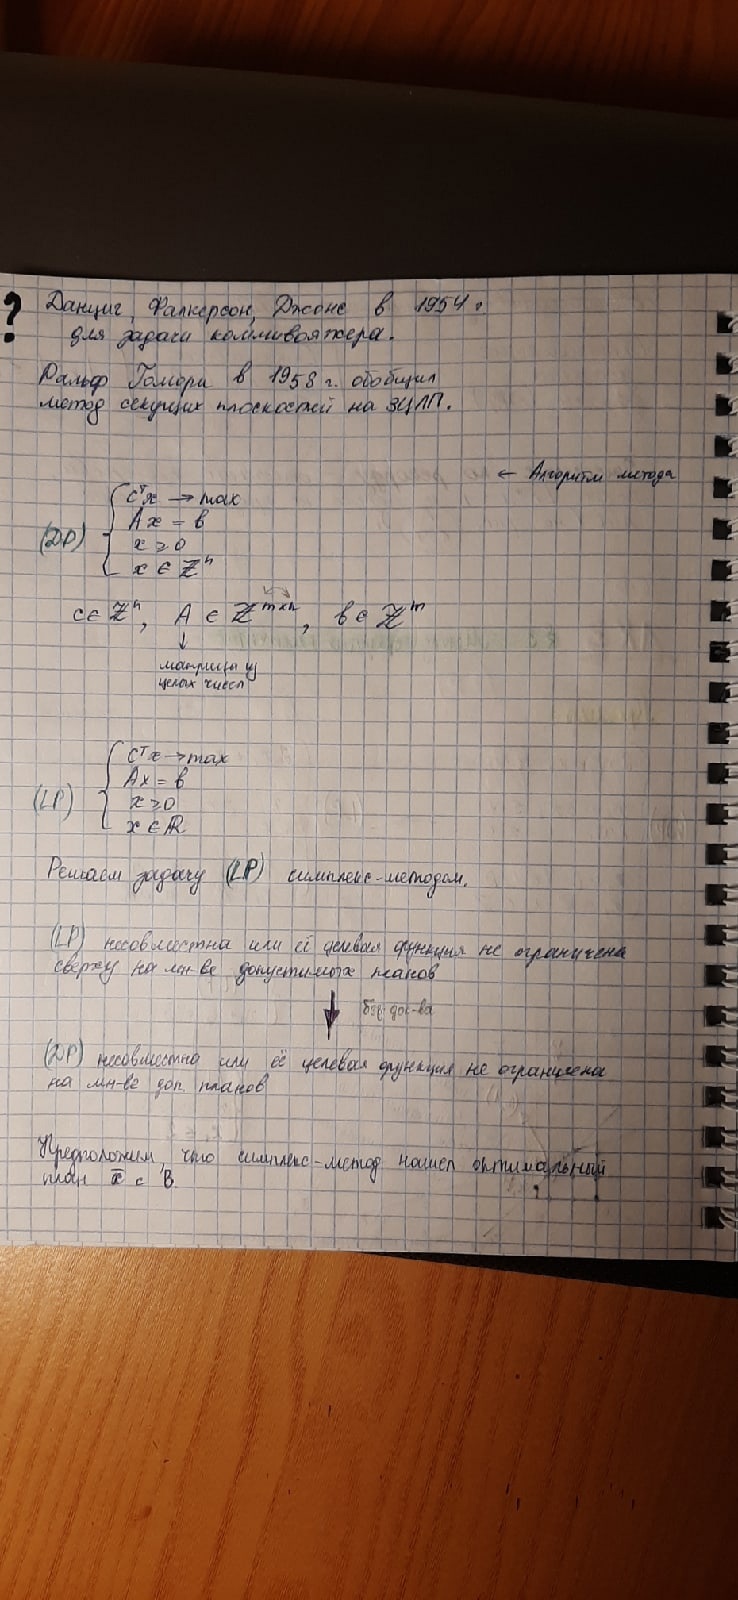 ? Данциг, Фалкерсон, Джонс в 1954 г.
для задачи коммивояжера.
Ральф Гомори в 1958 г. обобщил
метод секущих плоскостей на ЗЦЛП.
← Алгоритм метода
(DP) { cᵀx → max
Ax = b
x ≥ 0
x ∈ ℤⁿ
c ∈ ℤⁿ, A ∈ ℤᵐˣⁿ, b ∈ ℤᵐ
↓
матрица из
целых чисел
(LP) { cᵀx → max
Ax = b
x ≥ 0
x ∈ ℝ
Решаем задачу (LP) симплекс-методом.
(LP) несовместна или её целевая функция не ограничена
сверху на мн-ве допустимых планов
↓ без док-ва
(DP) несовместна или её целевая функция не ограничена
на мн-ве доп. планов
Предположим, что симплекс-метод нашел оптимальный
план x̄ с B